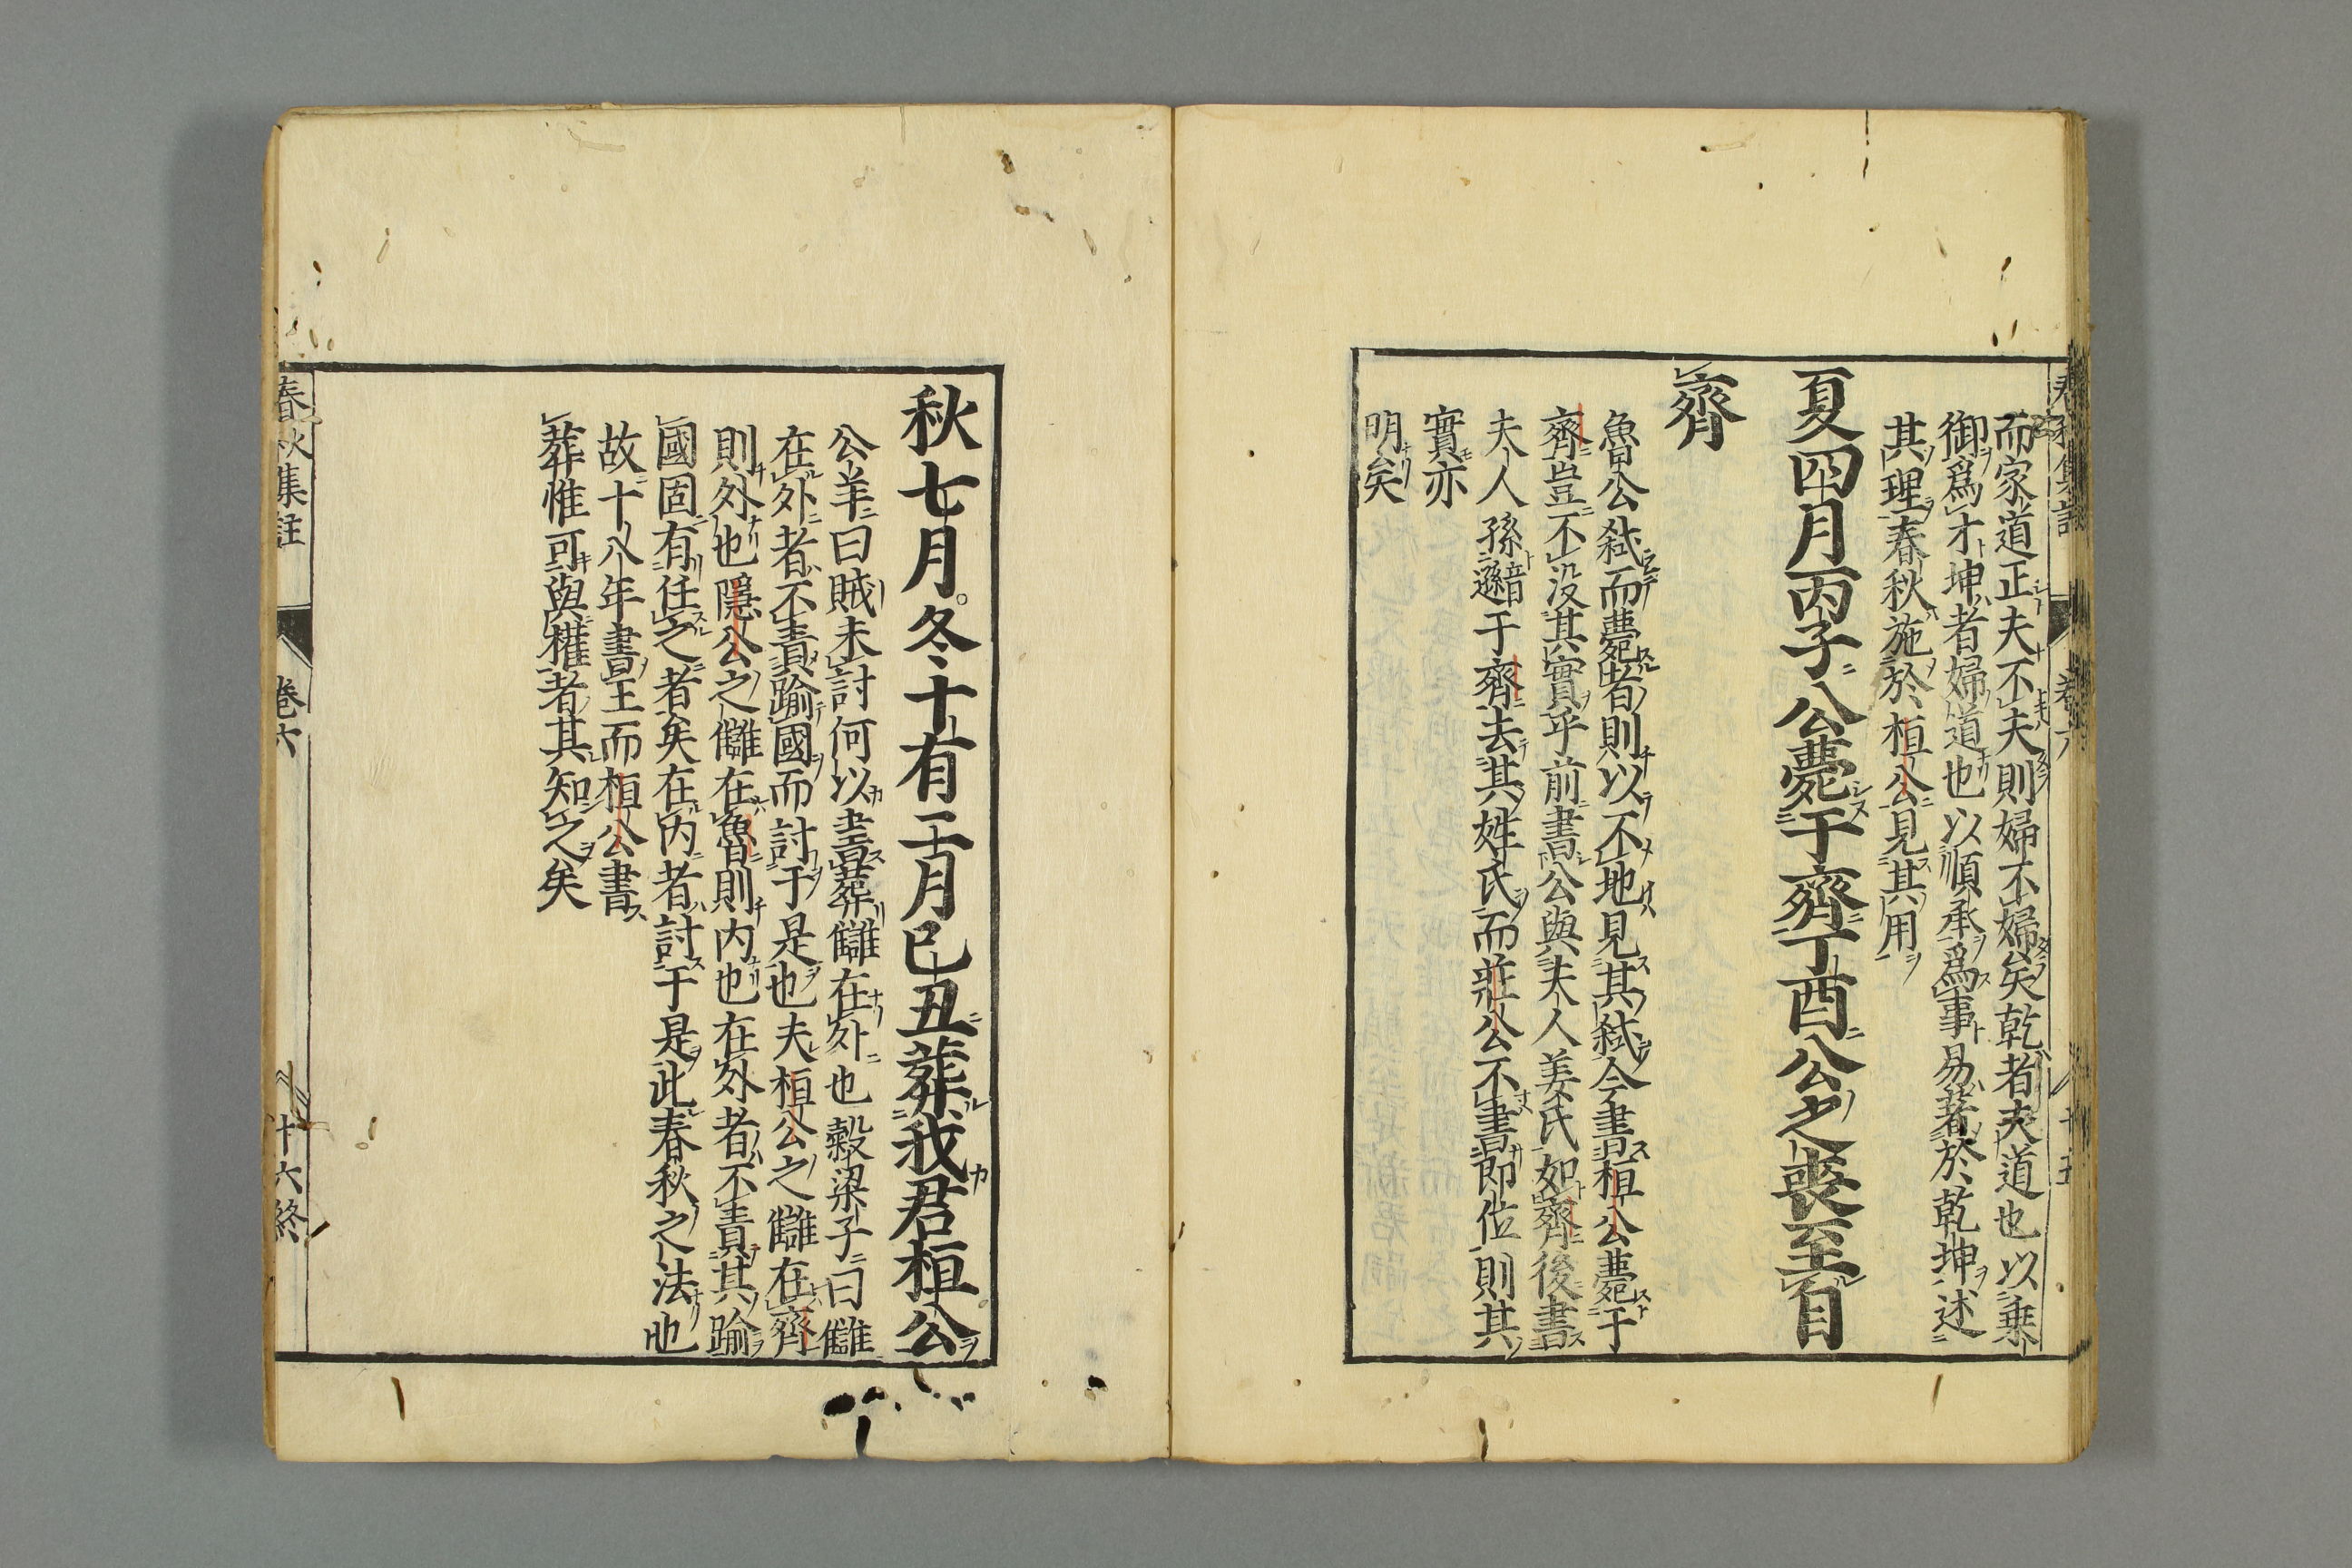 而家道正夫不夫則婦不婦矣乾者夫道也以乗
御爲才坤者婦道也以順承爲事易著於乾坤述
其理春秋施於桓公見其用
夏四月丙子公薨于齊丁酉公之喪至自
齊
魯公弑而薨者則以不地見其弑今書桓公薨于
齊豈不没其實乎前書公與夫人姜氏如齊後書
夫人孫音遜于齊去其姓氏而莊公不書即位則其
實亦
明矣
秋七月冬十有二月己丑葬我君桓公
公羊曰賊未討何以書葬讎在外也穀梁子曰讎
在外者不責踰國而討于是也夫桓公之讎在齊
則外也隱公之讎在魯則内也在外者不責其踰
國固有任之者矣在内者討于是此春秋之法也
故十八年書王而桓公書
葬惟可與權者其知之矣
春秋集註 卷六 十六終